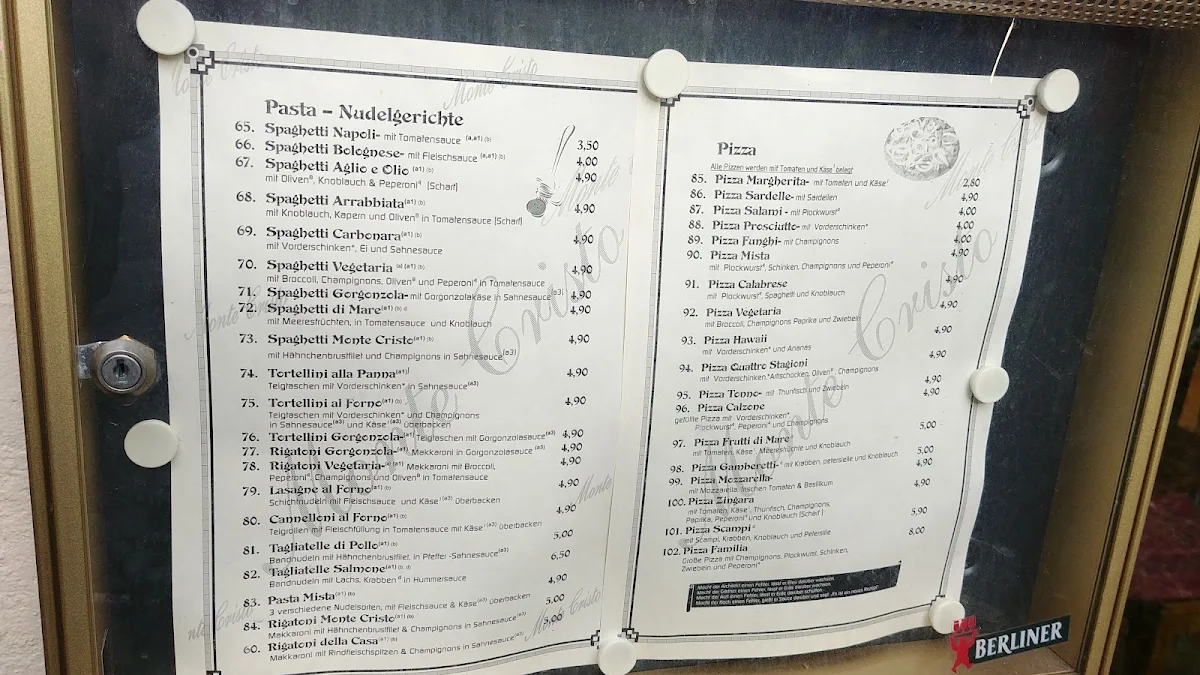 Pasta – Nudelgerichte
65. Spaghetti Napoli- mit Tomatensauce (a,a1) (b) 3,50
66. Spaghetti Bolognese- mit Fleischsauce (a,a1) (b) 4,00
67. Spaghetti Aglio e Olio (a1) (b) 4,90
mit Oliven, Knoblauch & Peperoni (Scharf)
68. Spaghetti Arrabbiata (a1) (b) 4,90
mit Knoblauch, Kapern und Oliven in Tomatensauce (Scharf)
69. Spaghetti Carbonara (a1) (b) 4,90
mit Vorderschinken*, Ei und Sahnesauce
70. Spaghetti Vegetaria (a) (a1) (b) 4,90
mit Broccoli, Champignons, Oliven und Peperoni in Tomatensauce
71. Spaghetti Gorgonzola- mit Gorgonzolakäse in Sahnesauce (a3) 4,90
72. Spaghetti di Mare (a1) (b) d 4,90
mit Meeresfrüchten, in Tomatensauce und Knoblauch
73. Spaghetti Monte Cristo (a1) (b) 4,90
mit Hähnchenbrustfilet und Champignons in Sahnesauce (a3)
74. Tortellini alla Panna (a1) 4,90
Teigtaschen mit Vorderschinken* in Sahnesauce (a3)
75. Tortellini al Forno (a1) (b) 4,90
Teigtaschen mit Vorderschinken* und Champignons
in Sahnesauce (a3) und Käse (a3) überbacken
76. Tortellini Gorgonzola- (a1) Teigtaschen mit Gorgonzolasauce (a3) 4,90
77. Rigatoni Gorgonzola- (a1) Makkaroni in Gorgonzolasauce (a3) 4,90
78. Rigatoni Vegetaria- (a1) Makkaroni mit Broccoli, 4,90
Peperoni, Champignons und Oliven in Tomatensauce
79. Lasagne al Forno (a1) (b) 4,90
Schichtnudeln mit Fleischsauce und Käse (a3) überbacken
80. Cannelloni al Forno (a1) (b) 4,90
Teigrollen mit Fleischfüllung in Tomatensauce mit Käse (a3) überbacken
81. Tagliatelle di Pollo (a1) (b) 5,00
Bandnudeln mit Hähnchenbrustfilet, in Pfeffer -Sahnesauce (a3)
82. Tagliatelle Salmone (a1) (b, d) 6,50
Bandnudeln mit Lachs, Krabben d in Hummersauce
83. Pasta Mista (a1) (b) 4,90
3 verschiedene Nudelsorten, mit Fleischsauce & Käse (a3) überbacken
84. Rigatoni Monte Cristo (a1) (b) 5,00
Makkaroni mit Hähnchenbrustfilet & Champignons in Sahnesauce (a3)
60. Rigatoni della Casa (a1) (b) 5,00
Makkaroni mit Rindfleischspitzen & Champignons in Sahnesauce (a3)
Pizza
Alle Pizzen werden mit Tomaten und Käse belegt
85. Pizza Margherita- mit Tomaten und Käse 2,80
86. Pizza Sardelle- mit Sardellen 4,90
87. Pizza Salami - mit Plockwurst 4,00
88. Pizza Prosciutto- mit Vorderschinken* 4,00
89. Pizza Funghi- mit Champignons 4,00
90. Pizza Mista 4,90
mit Plockwurst, Schinken, Champignons und Peperoni
91. Pizza Calabrese 4,90
mit Plockwurst, Spaghetti und Knoblauch
92. Pizza Vegetaria 4,90
mit Broccoli, Champignons Paprika und Zwiebeln
93. Pizza Hawaii 4,90
mit Vorderschinken* und Ananas
94. Pizza Quattro Stagioni 4,90
mit Vorderschinken,*Artischocken, Oliven, Champignons
95. Pizza Tonno- mit Thunfisch und Zwiebeln 4,90
96. Pizza Calzone 4,90
gefüllte Pizza mit Vorderschinken*
Plockwurst, Peperoni und Champignons
97. Pizza Frutti di Mare 5,00
mit Tomaten, Käse, Meeresfrüchte und Knoblauch
98. Pizza Gamberetti- mit Krabben, petersielie und Knoblauch 5,00
99. Pizza Mozzarella- 4,90
mit Mozzarella, frischen Tomaten & Basilikum
100. Pizza Zingara 4,90
mit Tomaten, Käse, Thunfisch, Champignons,
Paprika, Peperoni und Knoblauch (Scharf)
101. Pizza Scampi 5,90
mit Scampi, Krabben, Knoblauch und Petersilie
102. Pizza Familia 8,00
Große Pizza mit Champignons, Plockwurst, Schinken,
Zwiebeln und Peperoni
Macht der Architekt einen Fehler, lässt er Efeu darüber wachsen.
Macht der Gärtner einen Fehler, lässt er Gras darüber wachsen.
Macht der Arzt einen Fehler, lässt er Erde darüber schütten.
Macht der Koch einen Fehler, gießt er Sauce darüber und sagt „Es ist ein neues Rezept"
Monte Cristo
Monte Cristo
BERLINER